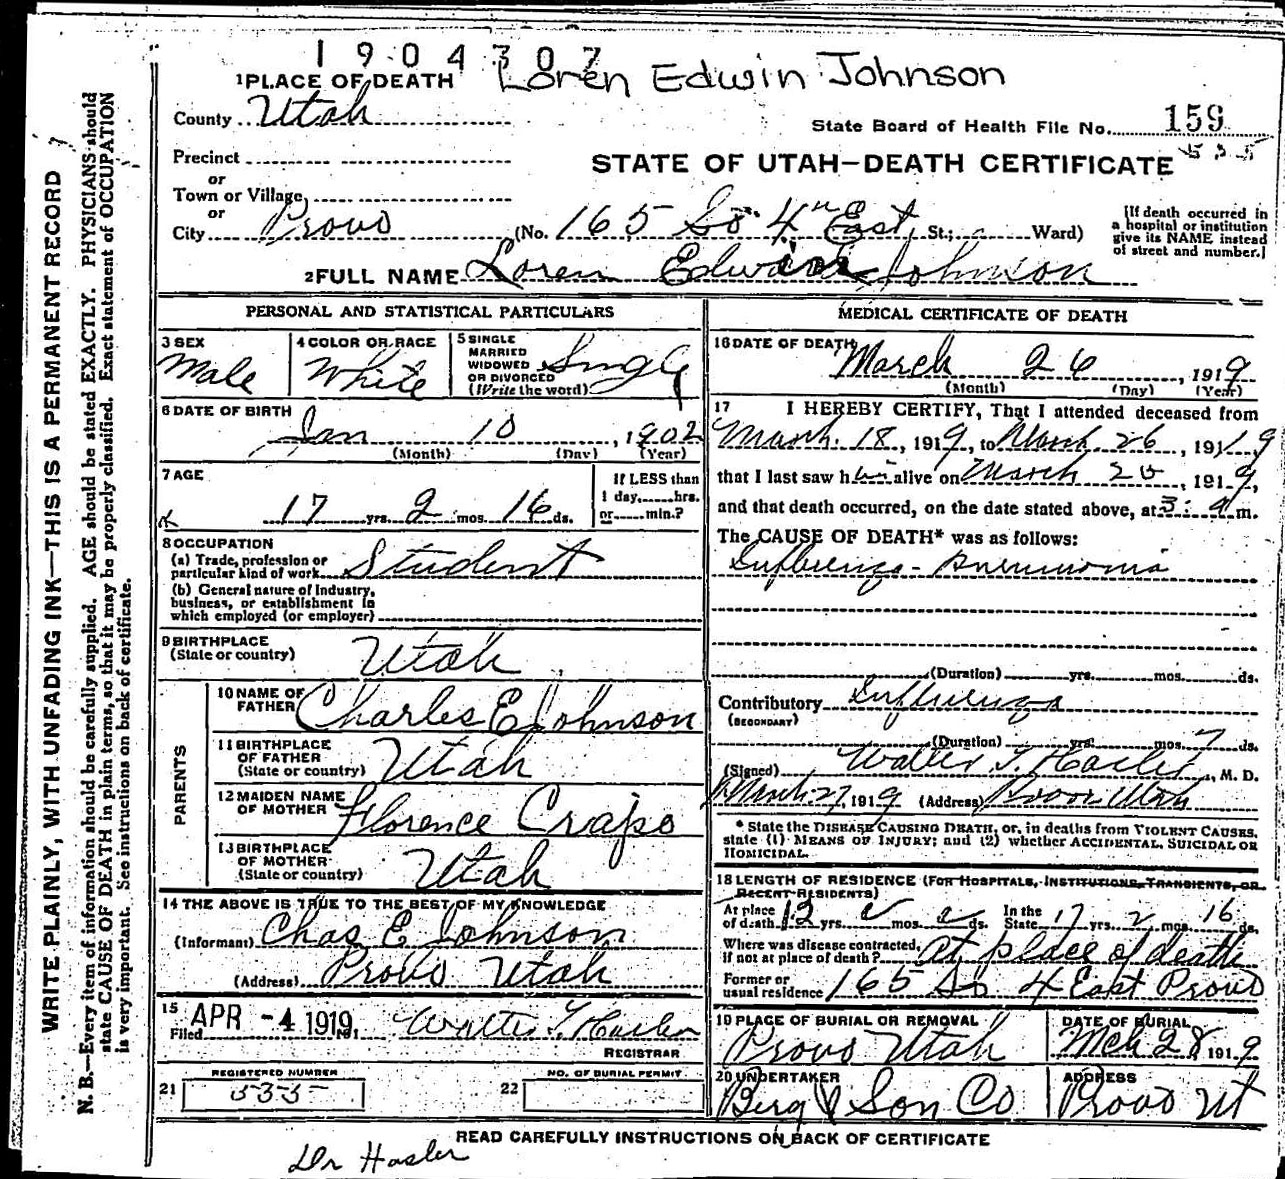 1904307
Loren Edwin Johnson
1 PLACE OF DEATH
County Utah
State Board of Health File No. 159
535
Precinct
STATE OF UTAH—DEATH CERTIFICATE
or
Town or Village
or
City Provo (No. 165 So 4th East St.; Ward)
[If death occurred in
a hospital or institution
give its NAME instead
of street and number.]
2 FULL NAME Loren Edwin Johnson
PERSONAL AND STATISTICAL PARTICULARS
3 SEX
Male
4 COLOR OR RACE
White
5 SINGLE
MARRIED
WIDOWED
OR DIVORCED
(Write the word)
Single
6 DATE OF BIRTH
Jan 10, 1902
(Month) (Day) (Year)
7 AGE
17 yrs. 2 mos. 16 ds.
If LESS than
1 day, hrs.
or min.?
8 OCCUPATION
(a) Trade, profession or
particular kind of work Student
(b) General nature of Industry,
business, or establishment in
which employed (or employer)
9 BIRTHPLACE
(State or country) Utah
PARENTS
10 NAME OF
FATHER Charles E Johnson
11 BIRTHPLACE
OF FATHER
(State or country) Utah
12 MAIDEN NAME
OF MOTHER Florence Crapo
13 BIRTHPLACE
OF MOTHER
(State or country) Utah
14 THE ABOVE IS TRUE TO THE BEST OF MY KNOWLEDGE
(Informant) Chas E Johnson
(Address) Provo Utah
15
Filed APR -4 1919, 191 Walter T. Hasler
REGISTRAR
REGISTERED NUMBER
21 535
NO. OF BURIAL PERMIT
22
MEDICAL CERTIFICATE OF DEATH
16 DATE OF DEATH
March 26, 1919
(Month) (Day) (Year)
17 I HEREBY CERTIFY, That I attended deceased from
March 18, 1919, to March 26, 1919
that I last saw him alive on March 25, 1919,
and that death occurred, on the date stated above, at 3: a m.
The CAUSE OF DEATH* was as follows:
Influenza - Pneumonia
(Duration) yrs. mos. ds.
Contributory Influenza
(SECONDARY)
(Duration) yrs. mos. 7 ds.
(Signed) Walter T. Hasler, M. D.
March 27, 1919 (Address) Provo Utah
* State the DISEASE CAUSING DEATH, or, in deaths from VIOLENT CAUSES,
state (1) MEANS OF INJURY; and (2) whether ACCIDENTAL, SUICIDAL OR
HOMICIDAL.
18 LENGTH OF RESIDENCE (FOR HOSPITALS, INSTITUTIONS, TRANSIENTS, OR
RECENT RESIDENTS)
At place
of death 12 yrs. mos. ds. In the
State 17 yrs. 2 mos. 16 ds.
Where was disease contracted,
if not at place of death? At place of death
Former or
usual residence 165 So 4 East Provo
19 PLACE OF BURIAL OR REMOVAL
Provo Utah
DATE OF BURIAL
Mch 28 1919
20 UNDERTAKER
Berg & Son Co
ADDRESS
Provo Ut
READ CAREFULLY INSTRUCTIONS ON BACK OF CERTIFICATE
Dr Hasler
WRITE PLAINLY, WITH UNFADING INK—THIS IS A PERMANENT RECORD
N. B.—Every item of information should be carefully supplied. AGE should be stated EXACTLY. PHYSICIANS should
state CAUSE OF DEATH in plain terms, so that it may be properly classified. Exact statement of OCCUPATION
is very important. See instructions on back of certificate.